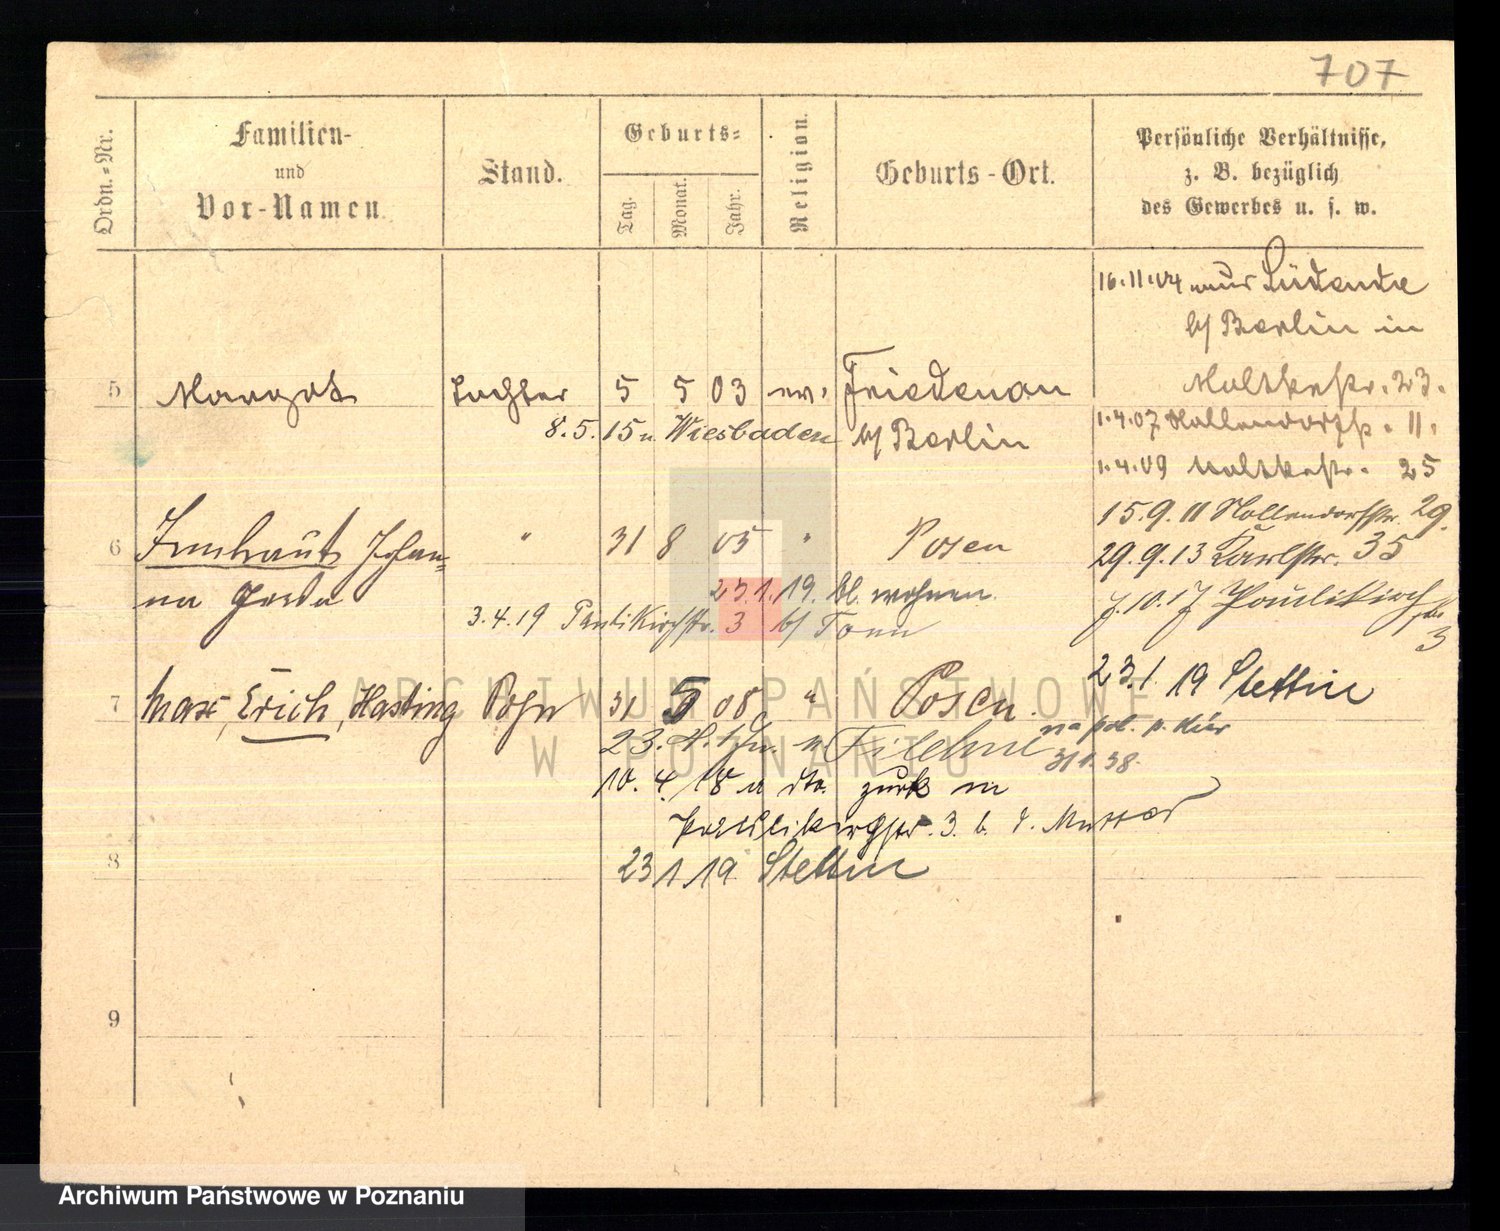 707
Ordn.-Nr.
Familien-
und
Vor-Namen.
Stand.
Geburts-
Tag.
Monat.
Jahr.
Religion.
Geburts-Ort.
Persönliche Verhältnisse,
z. B. bezüglich
des Gewerbes u. s. w.
16.11.04 Südende
b/ Berlin in
Moltkestr. 23.
5 Margot Tochter 5 5 03 ev. Friedenau
b/ Berlin
8.5.15 n. Wiesbaden
1.4.07 Hollendorfstr. 11.
1.4.09 Moltkestr. 25
15.9.11 Hollendorfstr. 29.
6 Irmtraut Johan-
na " 31 8 05 " Posen
29.9.13 Karlstr. 35
23.1.19. wohnen
3.4.19 Paulikirchstr. 3 b/
7.10.17 Paulikirchstr.
3
7 Max, Erich, Hasting Sohn 31 5 08 " Posen
23.1.19 Stettin
23. n Filehne
31 1. 38.
10.4.18 zurk in
Paulikirchstr. 3. b. d. Mutter
8
23 1 19 Stettin
9
ARCHIWUM PAŃSTWOWE
W POZNANIU
Archiwum Państwowe w Poznaniu